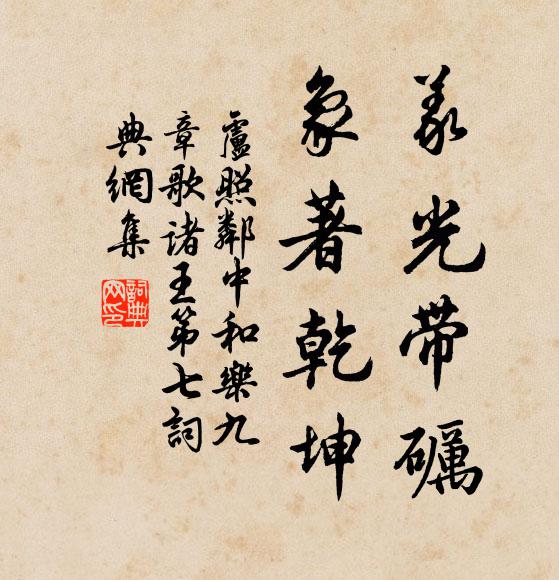 義光帶礪
象著乾坤
盧照鄰中和樂九
章歌諸王第七詞
典網集
詞典
网印